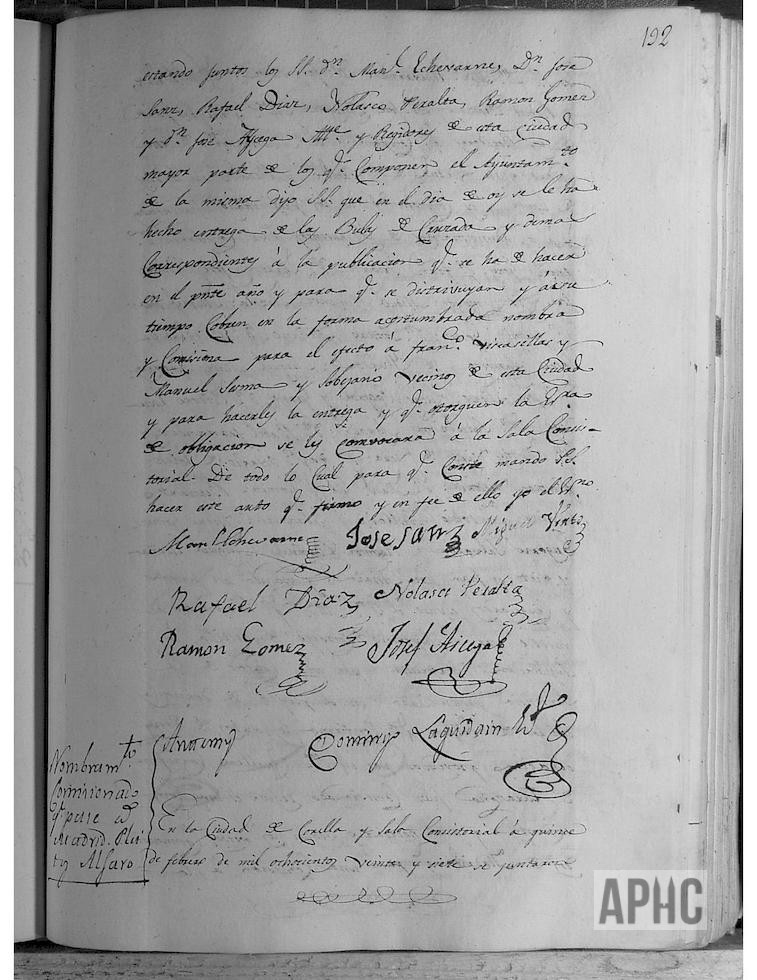 192
estando juntos los SS. Dn. Manl. Echevarne, Dn. Jose
Sanz, Rafael Diaz, Nolasco Peralta, Ramon Gomez
y Dn. Jose Aycega Alte. y Regidores de esta Ciudad
mayor parte de los q. Componen el Ayuntamto.
de la misma dijo SS. que en el dia de oy se le ha
hecho entrega de las Bulas de Cruzada y demas
Correspondientes á la publicacion q. se ha de hacer
en el pnte año y para q. se distrivuyan y á su
tiempo Cobren en la forma acostumbrada nombra
y Comisiona para el efecto á Franco. Viscasillas y
Manuel Sesma y Sobejano Vecinos de esta Ciudad
y para hacerles la entrega y q. otorguen la Esra
de obligacion se les convocara á la Sala Consis-
torial. De todo lo Cual para q. Conste mando S.S.
hacer este auto q. firmo y en fee de ello yo el Esno.
Manl Echevarne Jose Sanz Miguel Virto
Rafael Diaz Nolasco Peralta
Ramon Gomez Josef Aicega
Antemi Domingo Laquidain Es
Nombramto.
Comisionado
q. pase a
Madrid. Plei
to Alfaro
En la Ciudad de Corella y Sala Consistorial á quince
de febrero de mil ochocientos veinte y siete se juntaron
APHC